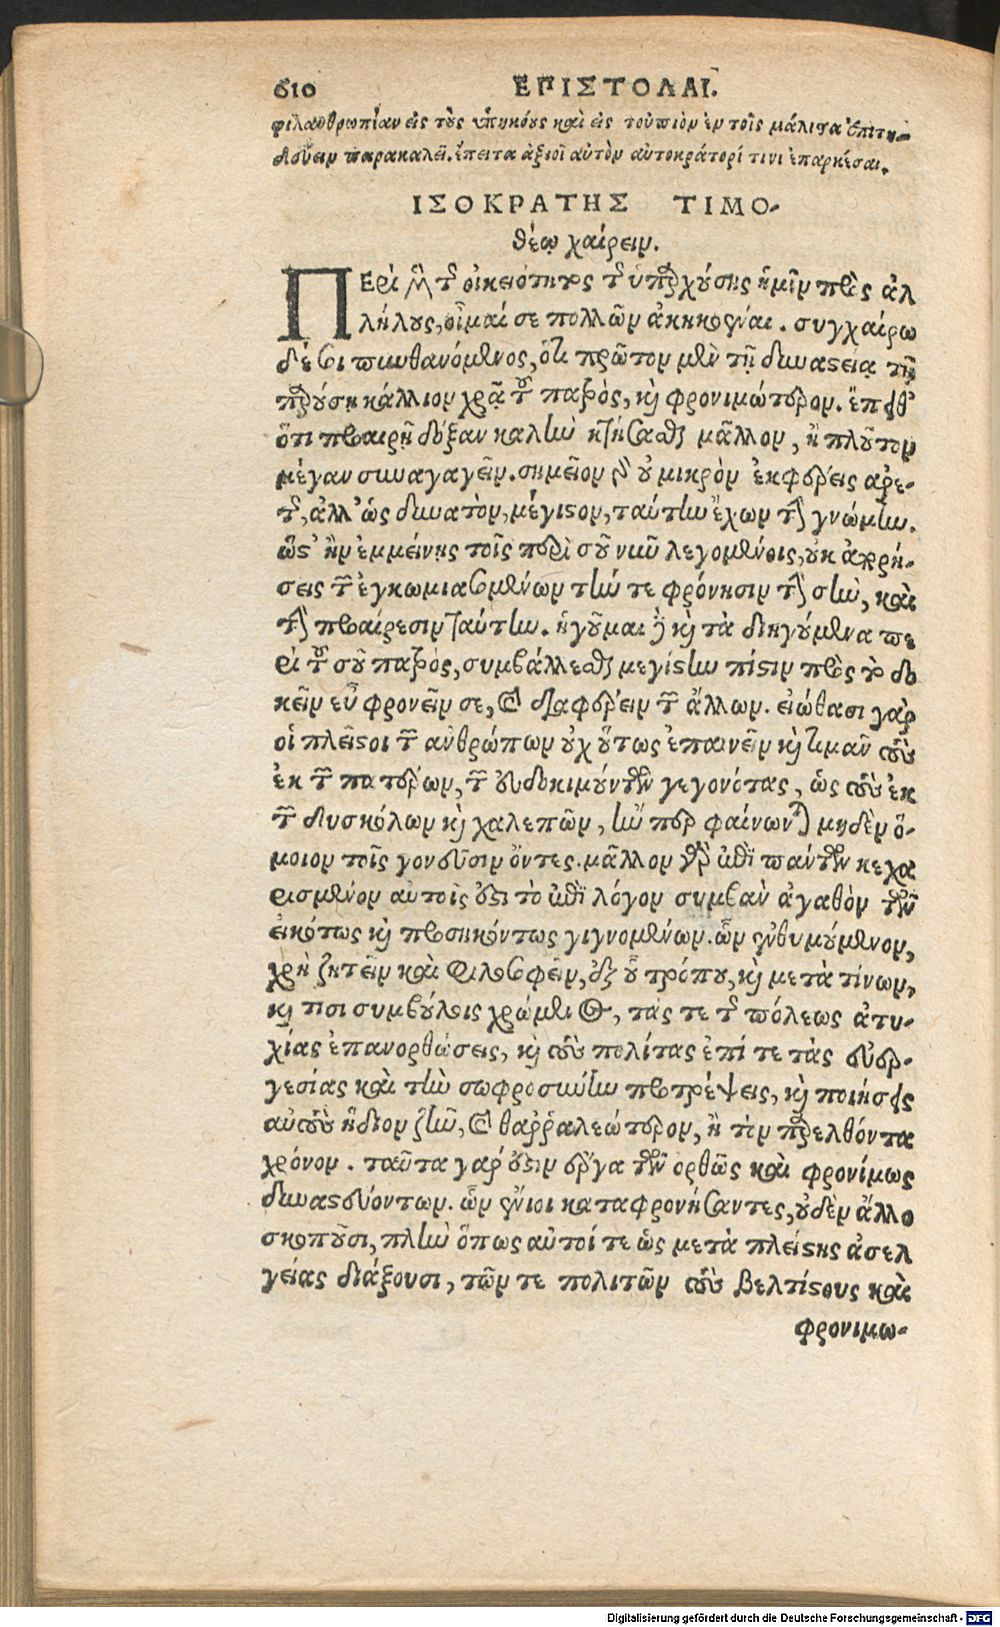 610 ΕΠΙΣΤΟΛΑΙ.
φιλανθρωπίαν εἰς τοὺς ὑπηκόους καὶ εἰς τοὐπιὸν ἐν τοῖς μάλιστα ἐπιτη-
δεύειν παρακαλεῖ. ἔπειτα ἀξιοῖ αὐτὸν αὐτοκράτορί τινι ἐπαρκέσαι.
ΙΣΟΚΡΑΤΗΣ ΤΙΜΟ-
θέῳ χαίρειν.
ΠΕρὶ μὲν τῆς οἰκειότητος τῆς ὑπαρχούσης ἡμῖν πρὸς ἀλ
λήλους, οἶμαί σε πολλῶν ἀκηκοέναι. συγχαίρω
δέ σοι πυνθανόμενος, ὅτι πρῶτον μὲν τῇ δυναστείᾳ τῇ
παρούσῃ κάλλιον χρᾷ τοῦ πατρὸς, καὶ φρονιμώτερον. ἔπειθ᾽
ὅτι προαιρῇ δόξαν καλὴν κτήσασθαι μᾶλλον, ἢ πλοῦτον
μέγαν συναγαγεῖν. σημεῖον γὰρ οὐ μικρὸν ἐκφέρεις ἀρε-
τῆς, ἀλλ᾽ ὡς δυνατὸν, μέγιστον, ταύτην ἔχων τὴν γνώμην.
ὥστ᾽ ἢν ἐμμείνῃς τοῖς περὶ σοῦ νῦν λεγομένοις, οὐκ ἀπορή-
σεις τῶν ἐγκωμιασομένων τήν τε φρόνησιν τὴν σὴν, καὶ
τὴν προαίρεσιν ταύτην. ἡγοῦμαι δὲ καὶ τὰ διηγούμενα πε
ρὶ τοῦ σοῦ πατρὸς, συμβάλλεσθαι μεγίστην πίστιν πρὸς τὸ δο
κεῖν εὖ φρονεῖν σε, καὶ διαφέρειν τῶν ἄλλων. εἰώθασι γὰρ
οἱ πλεῖστοι τῶν ἀνθρώπων οὐχ οὕτως ἐπαινεῖν καὶ τιμᾶν τοὺς
ἐκ τῶν πατέρων, τῶν εὐδοκιμούντων γεγονότας, ὡς τοὺς ἐκ
τῶν δυσκόλων καὶ χαλεπῶν, ἤν περ φαίνωνται μηδὲν ὅ-
μοιον τοῖς γονεῦσιν ὄντες. μᾶλλον γὰρ ἐπὶ πάντων κεχα
ρισμένον αὐτοῖς ἐστι τὸ παρὰ λόγον συμβὰν ἀγαθὸν τῶν
εἰκότως καὶ προσηκόντως γιγνομένων. ὧν ἐνθυμούμενον,
χρὴ ζητεῖν καὶ φιλοσοφεῖν, ἐξ οὗ τρόπου, καὶ μετὰ τίνων,
καὶ τισι συμβούλοις χρώμενος, τάς τε τῆς πόλεως ἀτυ-
χίας ἐπανορθώσεις, καὶ τοὺς πολίτας ἐπί τε τὰς εὐερ-
γεσίας καὶ τὴν σωφροσύνην προτρέψεις, καὶ ποιήσεις
αὐτοὺς ἥδιον ζῆν, καὶ θαῤῥαλεώτερον, ἢ τὸν παρελθόντα
χρόνον. ταῦτα γάρ ἐστιν ἔργα τῶν ὀρθῶς καὶ φρονίμως
δυναστευόντων. ὧν ἔνιοι καταφρονήσαντες, οὐδὲν ἄλλο
σκοποῦσι, πλὴν ὅπως αὐτοί τε ὡς μετὰ πλείστης ἀσελ
γείας διάξουσι, τῶν τε πολιτῶν τοὺς βελτίστους καὶ
φρονιμω-
Digitalisierung gefördert durch die Deutsche Forschungsgemeinschaft - DFG